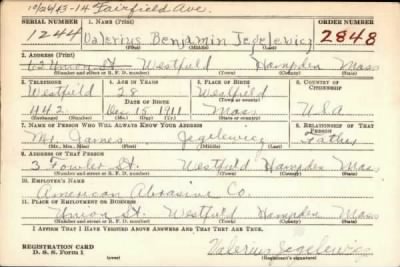 10/24/43-14 Fairfield Ave.
SERIAL NUMBER 1. NAME (Print) ORDER NUMBER
1244 Valerius Benjamin Jegelewicz 2848
(First) (Middle) (Last)
2. ADDRESS (Print)
Union St. Westfield Hampden Mass
(Number and street or R. F. D. number) (Town) (County) (State)
3. TELEPHONE 4. AGE IN YEARS 5. PLACE OF BIRTH 6. COUNTRY OF CITIZENSHIP
Westfield 28 Westfield
DATE OF BIRTH (Town or county)
442 Dec 15 1911 Mass U.S.A
(Exchange) (Number) (Mo.) (Day) (Yr.) (State or country)
7. NAME OF PERSON WHO WILL ALWAYS KNOW YOUR ADDRESS 8. RELATIONSHIP OF THAT PERSON
Mr. James Jegelewicz Father
(Mr., Mrs., Miss) (First) (Middle) (Last)
9. ADDRESS OF THAT PERSON
3 Fowler St. Westfield Hampden Mass
(Number and street or R. F. D. number) (Town) (County) (State)
10. EMPLOYER'S NAME
American Abrasive Co.
11. PLACE OF EMPLOYMENT OR BUSINESS
Union St. Westfield Hampden Mass
(Number and street or R. F. D. number) (Town) (County) (State)
I AFFIRM THAT I HAVE VERIFIED ABOVE ANSWERS AND THAT THEY ARE TRUE.
REGISTRATION CARD
D. S. S. Form 1 (over) Valerius Jegelewicz
(Registrant's signature)